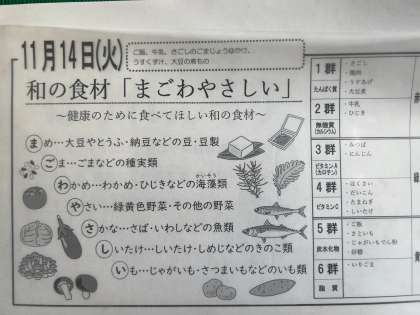 11月14日(火)
ご飯、牛乳、さごしのごまじょうゆかけ、
うすくず汁、大豆の煮もの
和の食材「まごわやさしい」
～健康のために食べてほしい和の食材～
まめ…大豆やとうふ・納豆などの豆・豆製
ごま…ごまなどの種実類
わかめ…わかめ・ひじきなどの海藻類
かいそう
やさい…緑黄色野菜・その他の野菜
さかな…さば・いわしなどの魚類
しいたけ…しいたけ・しめじなどのきのこ類
いも…じゃがいも・さつまいもなどのいも類
1群
たんぱく質
・さごし
・鶏肉
・うすあげ
・大豆
2群
無機質
(カルシウム)
・牛乳
・ひじき
3群
ビタミンA
(カロテン)
・みつば
・にんじん
4群
ビタミンC
・はくさい
・だいこん
・たまねぎ
・しいたけ
5群
炭水化物
・ご飯
・さといも
・じゃがいもでん粉
・砂糖
6群
脂質
・いりごま